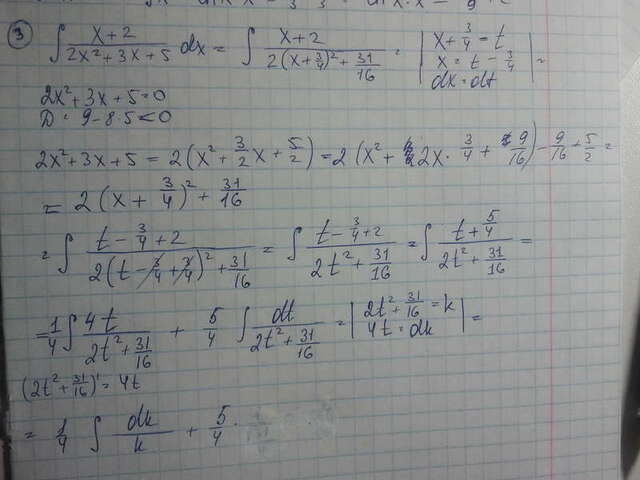 ③ ∫ (x+2)/(2x²+3x+5) dx = ∫ (x+2)/(2(x+3/4)²+31/16) = | x+3/4=t x=t-3/4 dx=dt | =
2x²+3x+5=0
D = 9-8·5<0
2x²+3x+5 = 2(x²+3/2x+5/2) = 2(x²+2x·3/4+9/16)-9/16+5/2=
= 2(x+3/4)²+31/16
= ∫ (t-3/4+2)/(2(t-3/4+3/4)²+31/16) = ∫ (t-3/4+2)/(2t²+31/16) = ∫ (t+5/4)/(2t²+31/16) =
= 1/4 ∫ 4t/(2t²+31/16) + 5/4 ∫ dt/(2t²+31/16) = | 2t²+31/16=k 4t=dk | =
(2t²+31/16)'=4t
= 1/4 ∫ dk/k + 5/4 ·